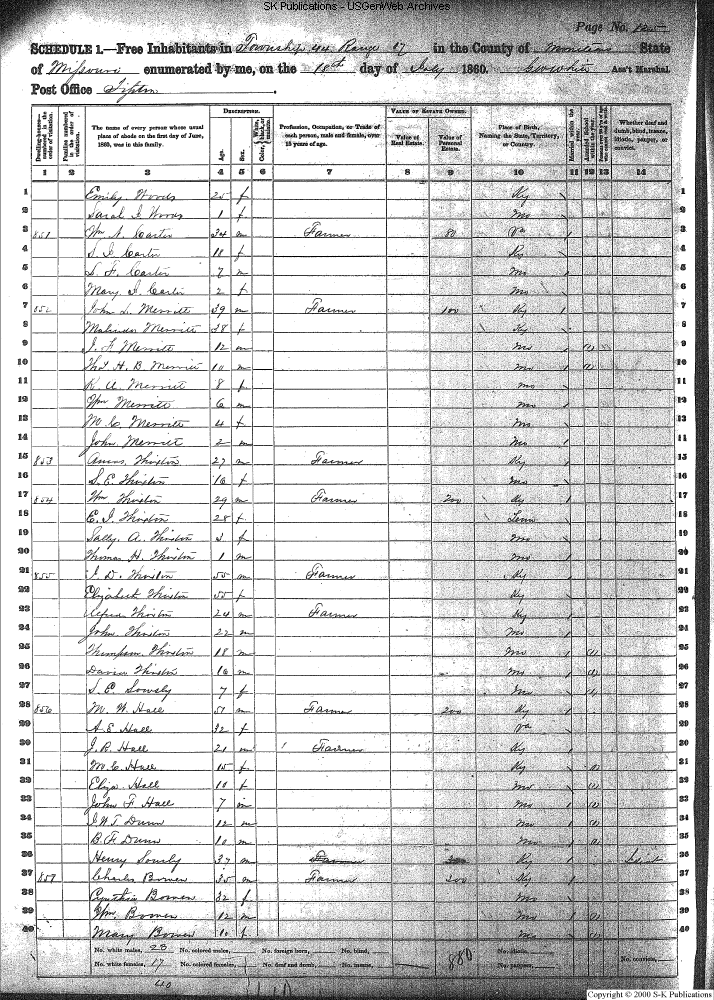 SK Publications - USGenWeb Archives
Page No. 125
SCHEDULE 1.—Free Inhabitants in Township 44 Range 17 in the County of Moniteau State
of Missouri enumerated by me, on the 18th day of July 1860. Geo White Ass't Marshal
Post Office Tipton
Dwelling-houses—numbered in the order of visitation. Families numbered in the order of visitation. The name of every person whose usual place of abode on the first day of June, 1860, was in this family. DESCRIPTION. Age. Sex. Color, White, black, or mulatto. Profession, Occupation, or Trade of each person, male and female, over 15 years of age. VALUE OF ESTATE OWNED. Value of Real Estate. Value of Personal Estate. Place of Birth, Naming the State, Territory, or Country. Married within the year. Attended School within the year. Whether deaf and dumb, blind, insane, idiotic, pauper, or convict.
1 2 3 4 5 6 7 8 9 10 11 12 13 14
1 Emily Woods 25 f Ky 1
2 Sarah J Woods 1 f Mo 2
3 851 Wm A. Carter 34 m Farmer 80 Va 3
4 S. J. Carter 11 f Ky 4
5 S. F. Carter 7 m Mo 5
6 Mary J. Carter 2 f Mo 6
7 852 John L. Merritt 39 m Farmer 100 Ky 7
8 Malinda Merritt 38 f Ky 8
9 J. F. Merritt 12 m Mo (1) 9
10 Thos H. B. Merritt 10 m Mo (1) 10
11 K. A. Merritt 8 f Mo 11
12 Wm Merritt 6 m Mo 12
13 M. C. Merritt 4 f Mo 13
14 John Merritt 2 m Mo 14
15 853 Thirston 27 m Farmer Ky 15
16 S. E. Thirston 16 f Mo 16
17 854 Wm Thirston 29 m Farmer 200 Ky 17
18 E. J. Thirston 28 f Tenn 18
19 Sally A. Thirston 3 f Mo 19
20 Thomas H. Thirston 1 m Mo 20
21 855 J. D. Thirston 55 m Farmer Ky 21
22 Elizabeth Thirston 55 f Ky 22
23 Thirston 24 m Farmer Ky 23
24 John Thirston 22 m Mo 24
25 Thompson Thirston 18 m Mo (1) 25
26 David Thirston 16 m Mo (1) 26
27 S. E. Sowsly 7 f Mo (1) 27
28 856 M. W. Hall 51 m Farmer 200 Ky 28
29 A. E. Hall 32 f Va 29
30 J. R. Hall 21 m Farmer Ky 30
31 M. E. Hall 15 f Ky (1) 31
32 Eliza Hall 10 f Mo (1) 32
33 John F Hall 7 m Mo (1) 33
34 J. W. T. Dunn 12 m Mo (1) 34
35 B. F. Dunn 10 m Mo (1) 35
36 Henry Sowsly 37 m Farmer 300 Ky 36
37 857 Charles Bowen 35 m Farmer 300 Ky 37
38 Cynthia Bowen 32 f Mo 38
39 Wm. Bowen 12 m Mo (1) 39
40 Mary Bowen 10 f Mo (1) 40
No. white males, 23 No. colored males, No. foreign born, No. blind,
No. white females, 17 No. colored females, No. deaf and dumb, No. insane, 880 No. idiotic, No. paupers, No. convicts,
40
Copyright © 2000 S-K Publications